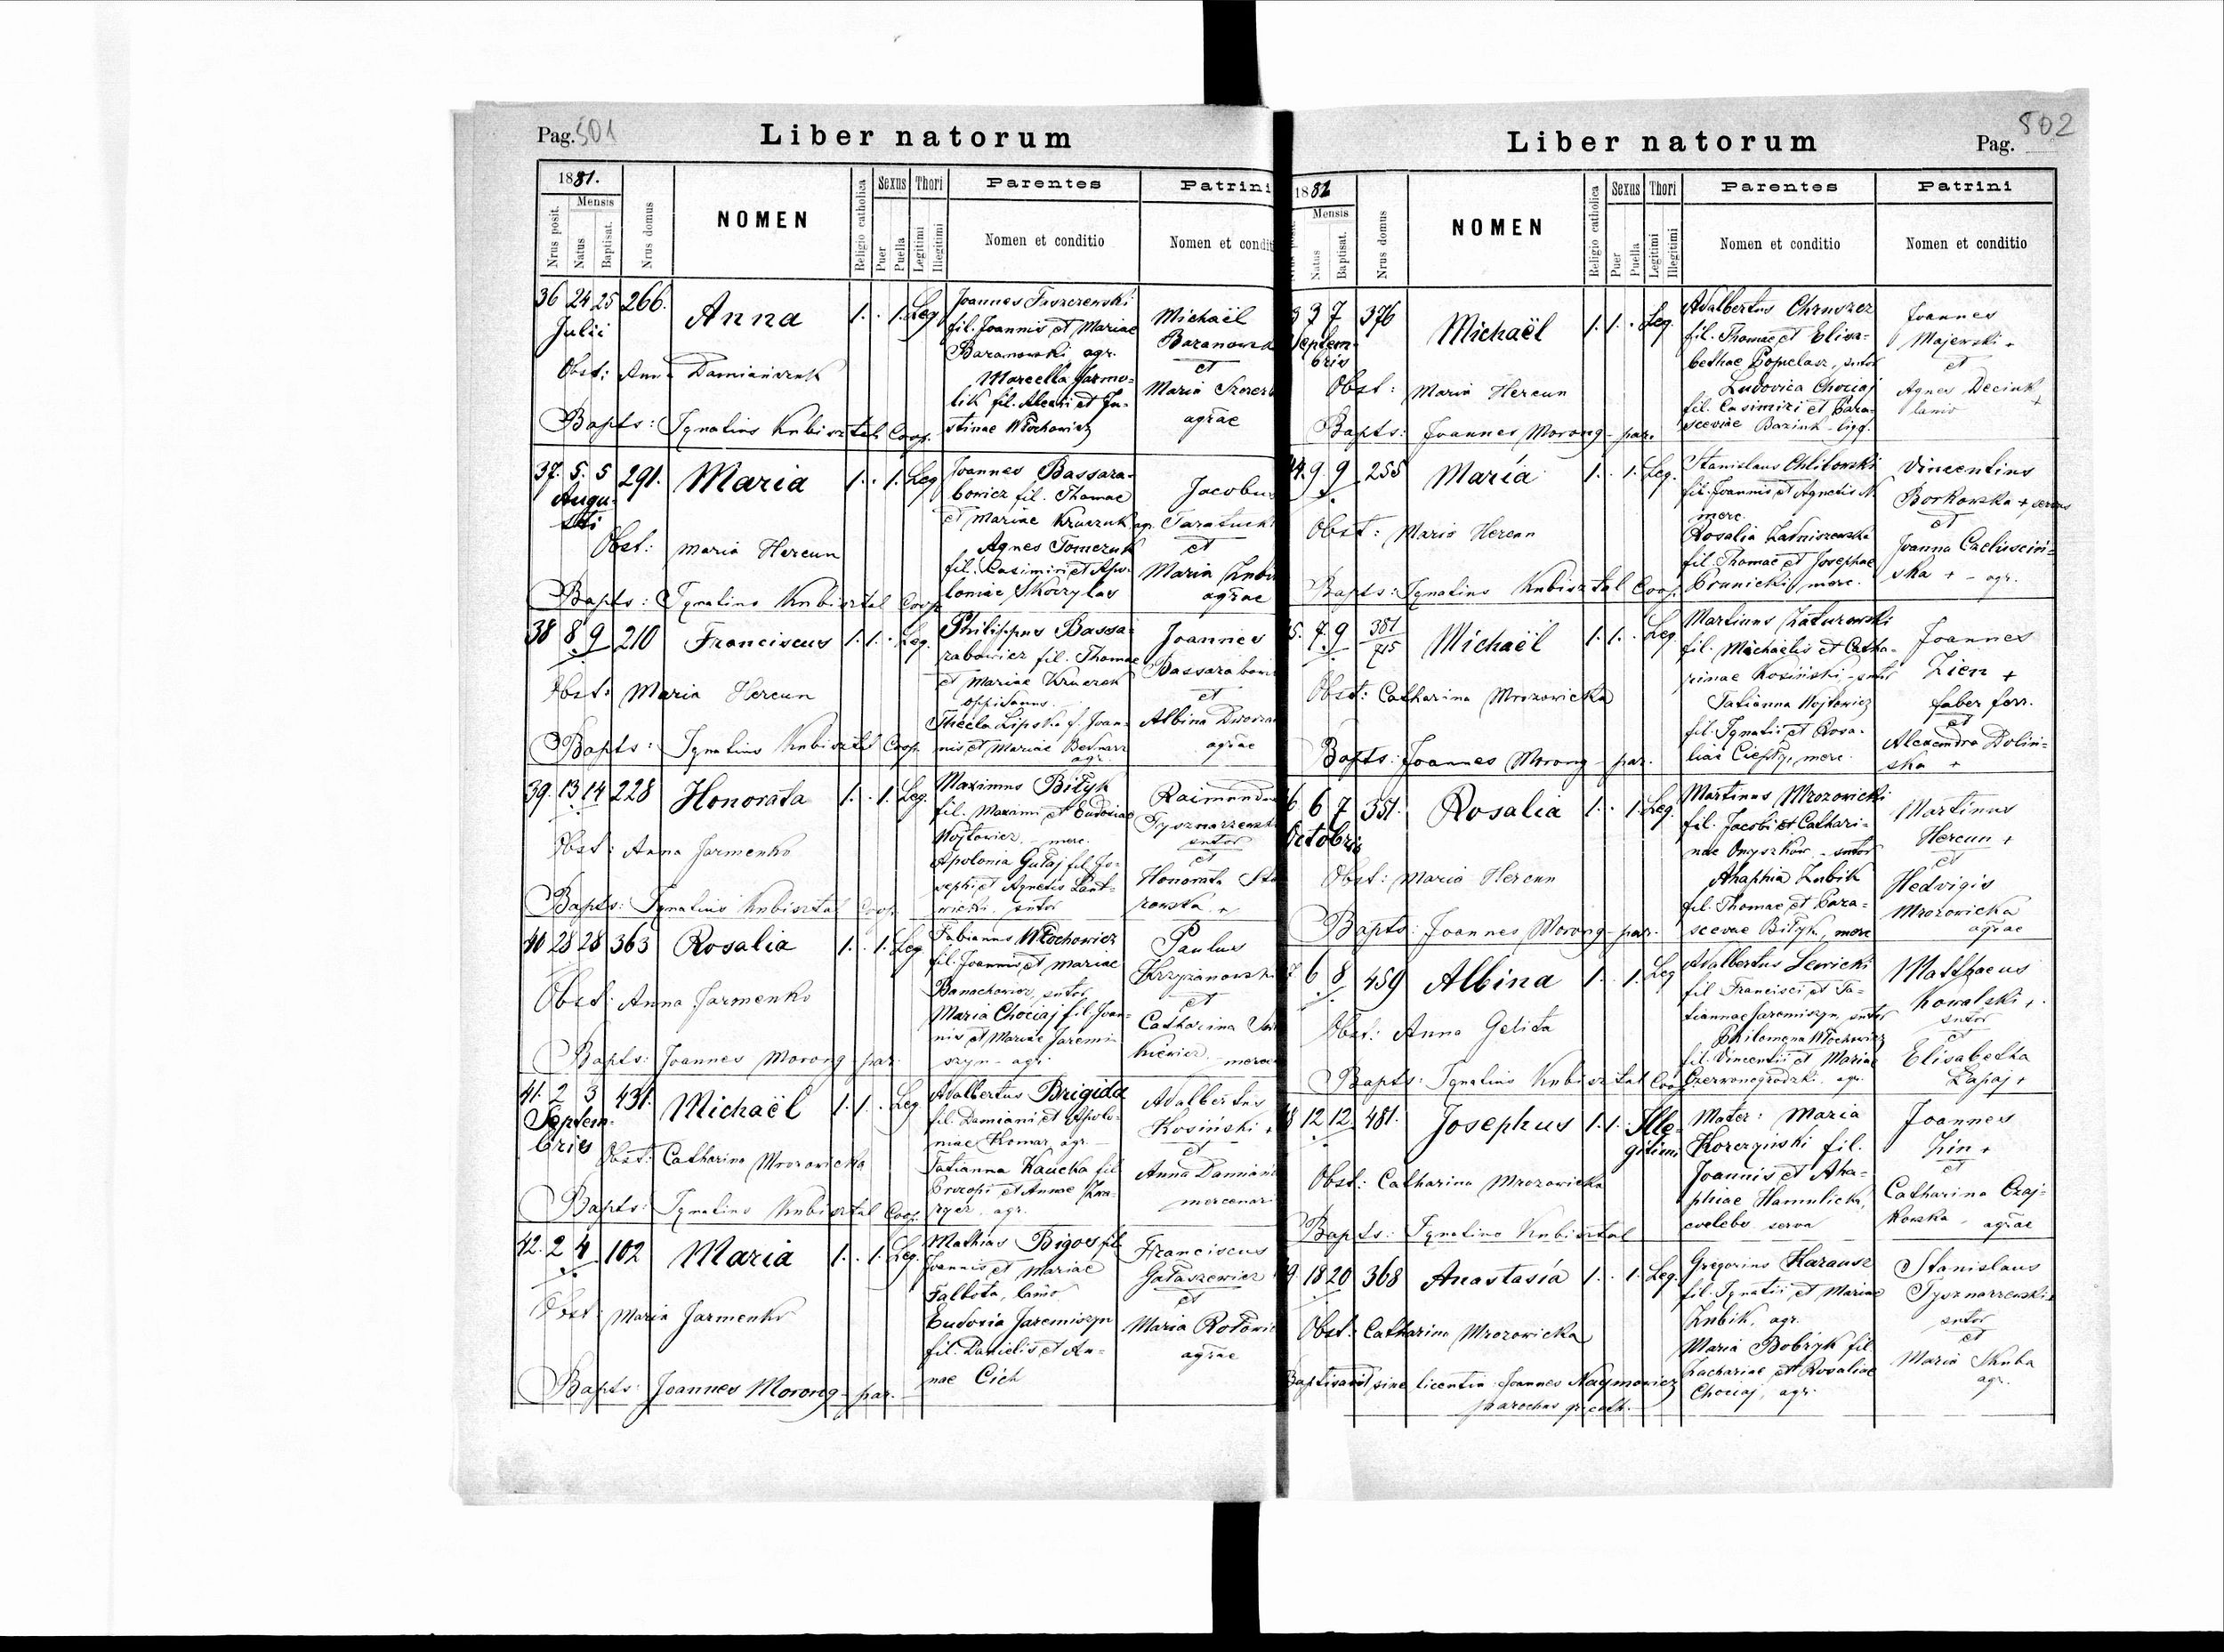 Pag. 501
Liber natorum
1881.
Mensis
Nrus posit.
Natus
Baptisat.
Nrus domus
NOMEN
Religio catholica
Sexus
Puer
Puella
Thori
Legitimi
Illegitimi
Parentes
Nomen et conditio
Patrini
Nomen et condit
36 24 25 266. Anna 1. . 1. Leg
Julii
Obst: Anna Damiańczuk
Bapts: Ignatius Kubisztal Coop.
Joannes
fil. Joannis et Mariae
Baranowski agr.
Marcella Jarmo-
lik fil. et Ju-
stinae Włochowicz
Michaël
et
Maria
agrae
37. 5. 5 291. Maria 1. . 1. Leg
Augu-
sti
Obst: Maria Hercun
Bapts: Ignatius Kubisztal Coop
Joannes Bassara-
bowicz fil. Thomae
et Mariae agr.
Agnes Tomczuk
fil. Casimiri et Apo-
loniae Skoczylas
Jacobus
et
Maria
agrae
38 8 9 210 Franciscus 1. 1. . Leg.
Obst: Maria Hercun
Bapts: Ignatius Kubisztal Coop.
Philippus Bassa-
rabowicz fil. Thomae
et Mariae
oppidanus.
Thecla Lipska f. Joan-
nis et Mariae Bednarz
agr.
Joannes
Bassarabow
et
Albina
agrae
39. 13 14 228 Honorata 1. . 1. Leg.
Obst: Anna Jarmenko
Bapts: Ignatius Kubisztal Coop.
Maximus Biłyk
fil. Maximi et Eudoxiae
Wojtowicz - merc.
Apolonia Gułaj fil. Jo-
sephi et Agnetis
sutor
sutor
et
Honorata
40 28 28 363 Rosalia 1. . 1. Leg
Obst: Anna Jarmenko
Bapts: Joannes Morong - par.
Fabianus Włochowicz
fil. Joannis et Mariae
Banachowicz, sutor
Maria Chociaj fil. Joan-
nis et Mariae Jaremi-
szyn - agr.
Paulus
Krzyżanowski
et
Catharina
41. 2 3 431. Michaël 1. 1. . Leg
Septem-
bris
Obst: Catharina Mrozowicka
Bapts: Ignatius Kubisztal Coop.
Adalbertus Brigida
fil. Damiani et Apolo-
niae Komar, agr. -
Tatianna Kaucka fil
et Annae
agr.
Adalbertus
Kosiński +
et
Anna
mercenari
42. 2 4. 102 Maria 1. . 1. Leg.
Obst: Maria Jarmenko
Bapts: Joannes Morong - par.
Mathias Bigos fil
Joannis et Mariae
Falbota, lanio
Eudoxia Jaremiszyn
fil. Danielis et An-
nae Cich
Franciscus
Gałaszewicz
et
Maria
agrae
Liber natorum
Pag. 502
1881
Mensis
Natus
Baptisat.
Nrus domus
NOMEN
Religio catholica
Sexus
Puer
Puella
Thori
Legitimi
Illegitimi
Parentes
Nomen et conditio
Patrini
Nomen et conditio
3 3 7 376 Michaël 1. 1. . Leg.
Septem-
bris
Obst: Maria Hercun
Bapts: Joannes Morong - par.
Adalbertus Chruszcz
fil. Thomae et Elisa-
bethae Popielasz, sutor
Ludovica Chociaj
fil. Casimiri et Para-
sceviae
Joannes
Majewski +
et
Agnes Deciuk +
lanio
44. 9. 9 255 Maria 1. . 1. Leg.
Obst: Maria Hercun
Bapts: Ignatius Kubisztal Coop.
Stanislaus Chlitowski
fil. Joannis et Agnetis N.
merc.
Rosalia
fil. Thomae et Josephae
merc.
Vincentius
Borkowska +
et
Joanna
ska + - agr.
5. 7. 9 381/715 Michaël 1. 1. . Leg
Obst: Catharina Mrozowicka
Bapts: Joannes Morong - par.
Martinus Zaturowski
fil. Michaelis et Catha-
rinae Kosiński, - sutor
Tatianna Wojtowicz
fil. Ignatii et Rosa-
liae Ciepły, merc.
Joannes
Zien +
faber ferr.
et
Alexandra Dolin-
ska +
6 6 7 351. Rosalia 1. . 1. Leg.
Octobris
Obst: Maria Hercun
Bapts: Joannes Morong - par.
Martinus Mrozowicki
fil. Jacobi et Cathari-
nae Onyszków - sutor
Ahaphia Zubik
fil. Thomae et Para-
scevae Biłyk, merc
Martinus
Hercun +
et
Hedvigis
Mrozowicka
agrae
7 6 8 459 Albina 1. . 1. Leg
Obst: Anna Gelita
Bapts: Ignatius Kubisztal Coop.
Adalbertus Lewicki
fil Francisci et Ta-
tiannae Jaremiszyn, sutor
Philomena Włochowicz
fil. Vincentii et Mariae
Czerwonogrodzki, agr.
Matthaeus
Kowalski +
sutor
et
Elisabetha
Łapaj +
48 12 12. 481. Josephus 1. 1. Ille-
gitimi
Obst: Catharina Mrozowicka
Bapts: Ignatius Kubisztal
Mater: Maria
Korczyński fil.
Joannis et Aha-
phiae
coelebs serva
Joannes
Zin +
et
Catharina Czaj-
kowska, agrae
49. 18 20 368 Anastasia 1. . 1. Leg.
Obst: Catharina Mrozowicka
Baptisavit sine licentia Joannes Naymowicz
parochus gr. cath.
Gregorius Karausz
fil. Ignatii et Mariae
Zubik, agr.
Maria Bobryk fil
Zachariae et Rosaliae
Chociaj, agr.
Stanislaus
Tysznarzewski +
sutor
et
Maria Skuba
agr.